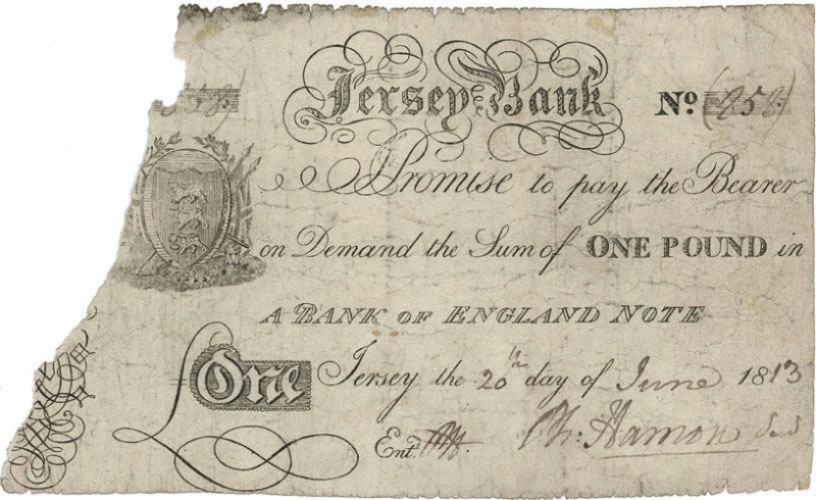 Jersey Bank No. (858)
Promise to pay the Bearer
on Demand the Sum of ONE POUND in
A BANK OF ENGLAND NOTE
£One Jersey the 20th day of June 1813
Ent.d Ch: Hamon